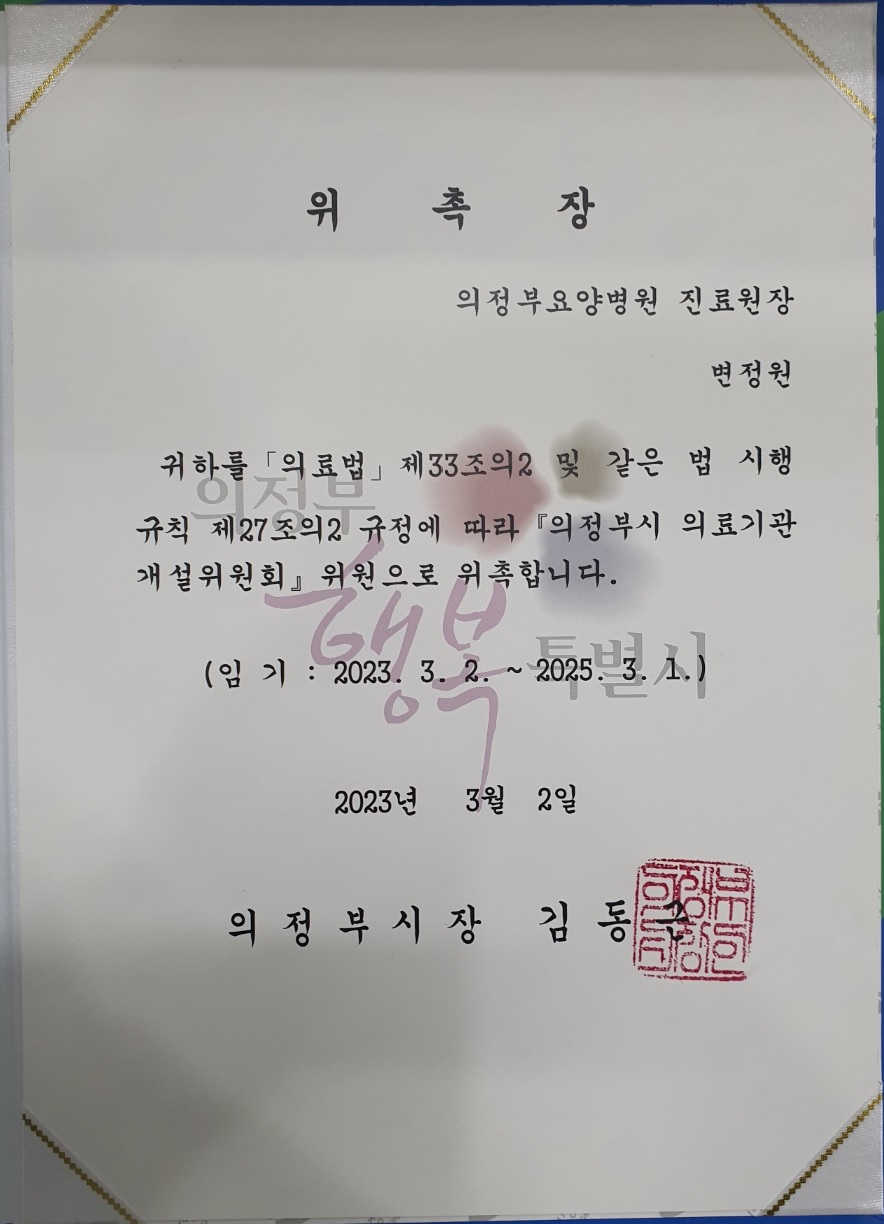 위 촉 장
의정부요양병원 진료원장
변정원
귀하를 「의료법」 제33조의2 및 같은 법 시행
규칙 제27조의2 규정에 따라 『의정부시 의료기관
개설위원회』 위원으로 위촉합니다.
의정부
행복 특별시
(임 기 : 2023. 3. 2. ~ 2025. 3. 1.)
2023년 3월 2일
의 정 부 시 장 김 동 근